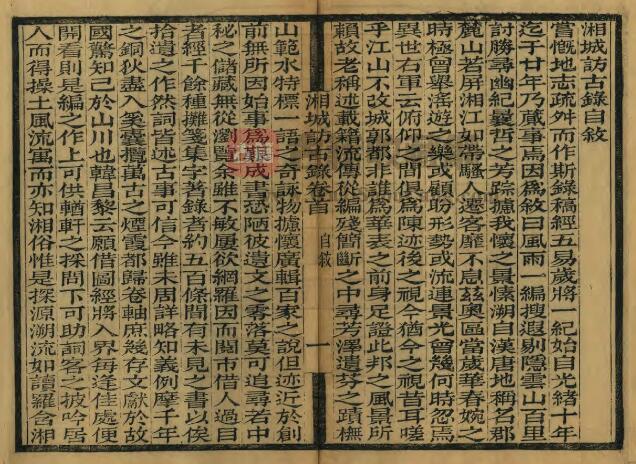 湘城訪古錄自敘
嘗慨地志疏舛而作斯錄稿經五易歲將一紀始自光緒十年
迄于廿年乃蕆事焉因爲敘曰風雨一編搜遐剔隱雲山百里
討勝尋幽紀曩哲之芳踪攄我懷之景愫溯自漢唐地稱名郡
麓山若屏湘江如帶騷人遷客靡不息兹奧區當歲華春婉之
時極曾舉滛遊之樂或顧盼形勢或流連景光曾幾何時忽焉
異世右軍云俯仰之間俱爲陳迹後之視今猶今之視昔耳嗟
乎江山不改城郭都非誰爲華表之前身足證此邦之風景所
賴故老稱述載籍流傳從編殘簡斷之中尋芳澤遺芬之蹟橅
湘城訪古錄卷首
自敘
一
山範水特標一語之奇詠物攄懷廣輯百家之說但迹近於創
前無所因始事爲難成書恐陋彼遺文之零落莫可追尋若中
秘之儲藏無從瀏覽余雖不敏屢欲網羅因而閱市借人過目
者經千餘種攤箋集字著錄者約五百條間有未見之書以俟
拾遺之作然詞皆述古事可信今雖未周詳略知義例摩千年
之銅狄盡入奚囊攬萬古之煙霞都歸卷軸庶幾存文獻於故
國驚知己於山川也韓昌黎云願借圖經將入界每逢佳處便
開看則是編之作上可供輶軒之採問下可助詞客之披吟居
人而得操土風流寓而亦知湘俗惟是探源溯流如讀羅含湘